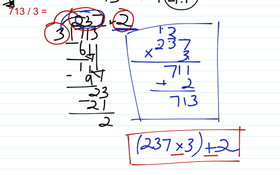 713 / 3 =
237 + 2
3 713
- 6
11
- 9
23
- 21
2
13
237
× 3
711
+ 2
713
(237 × 3) + 2